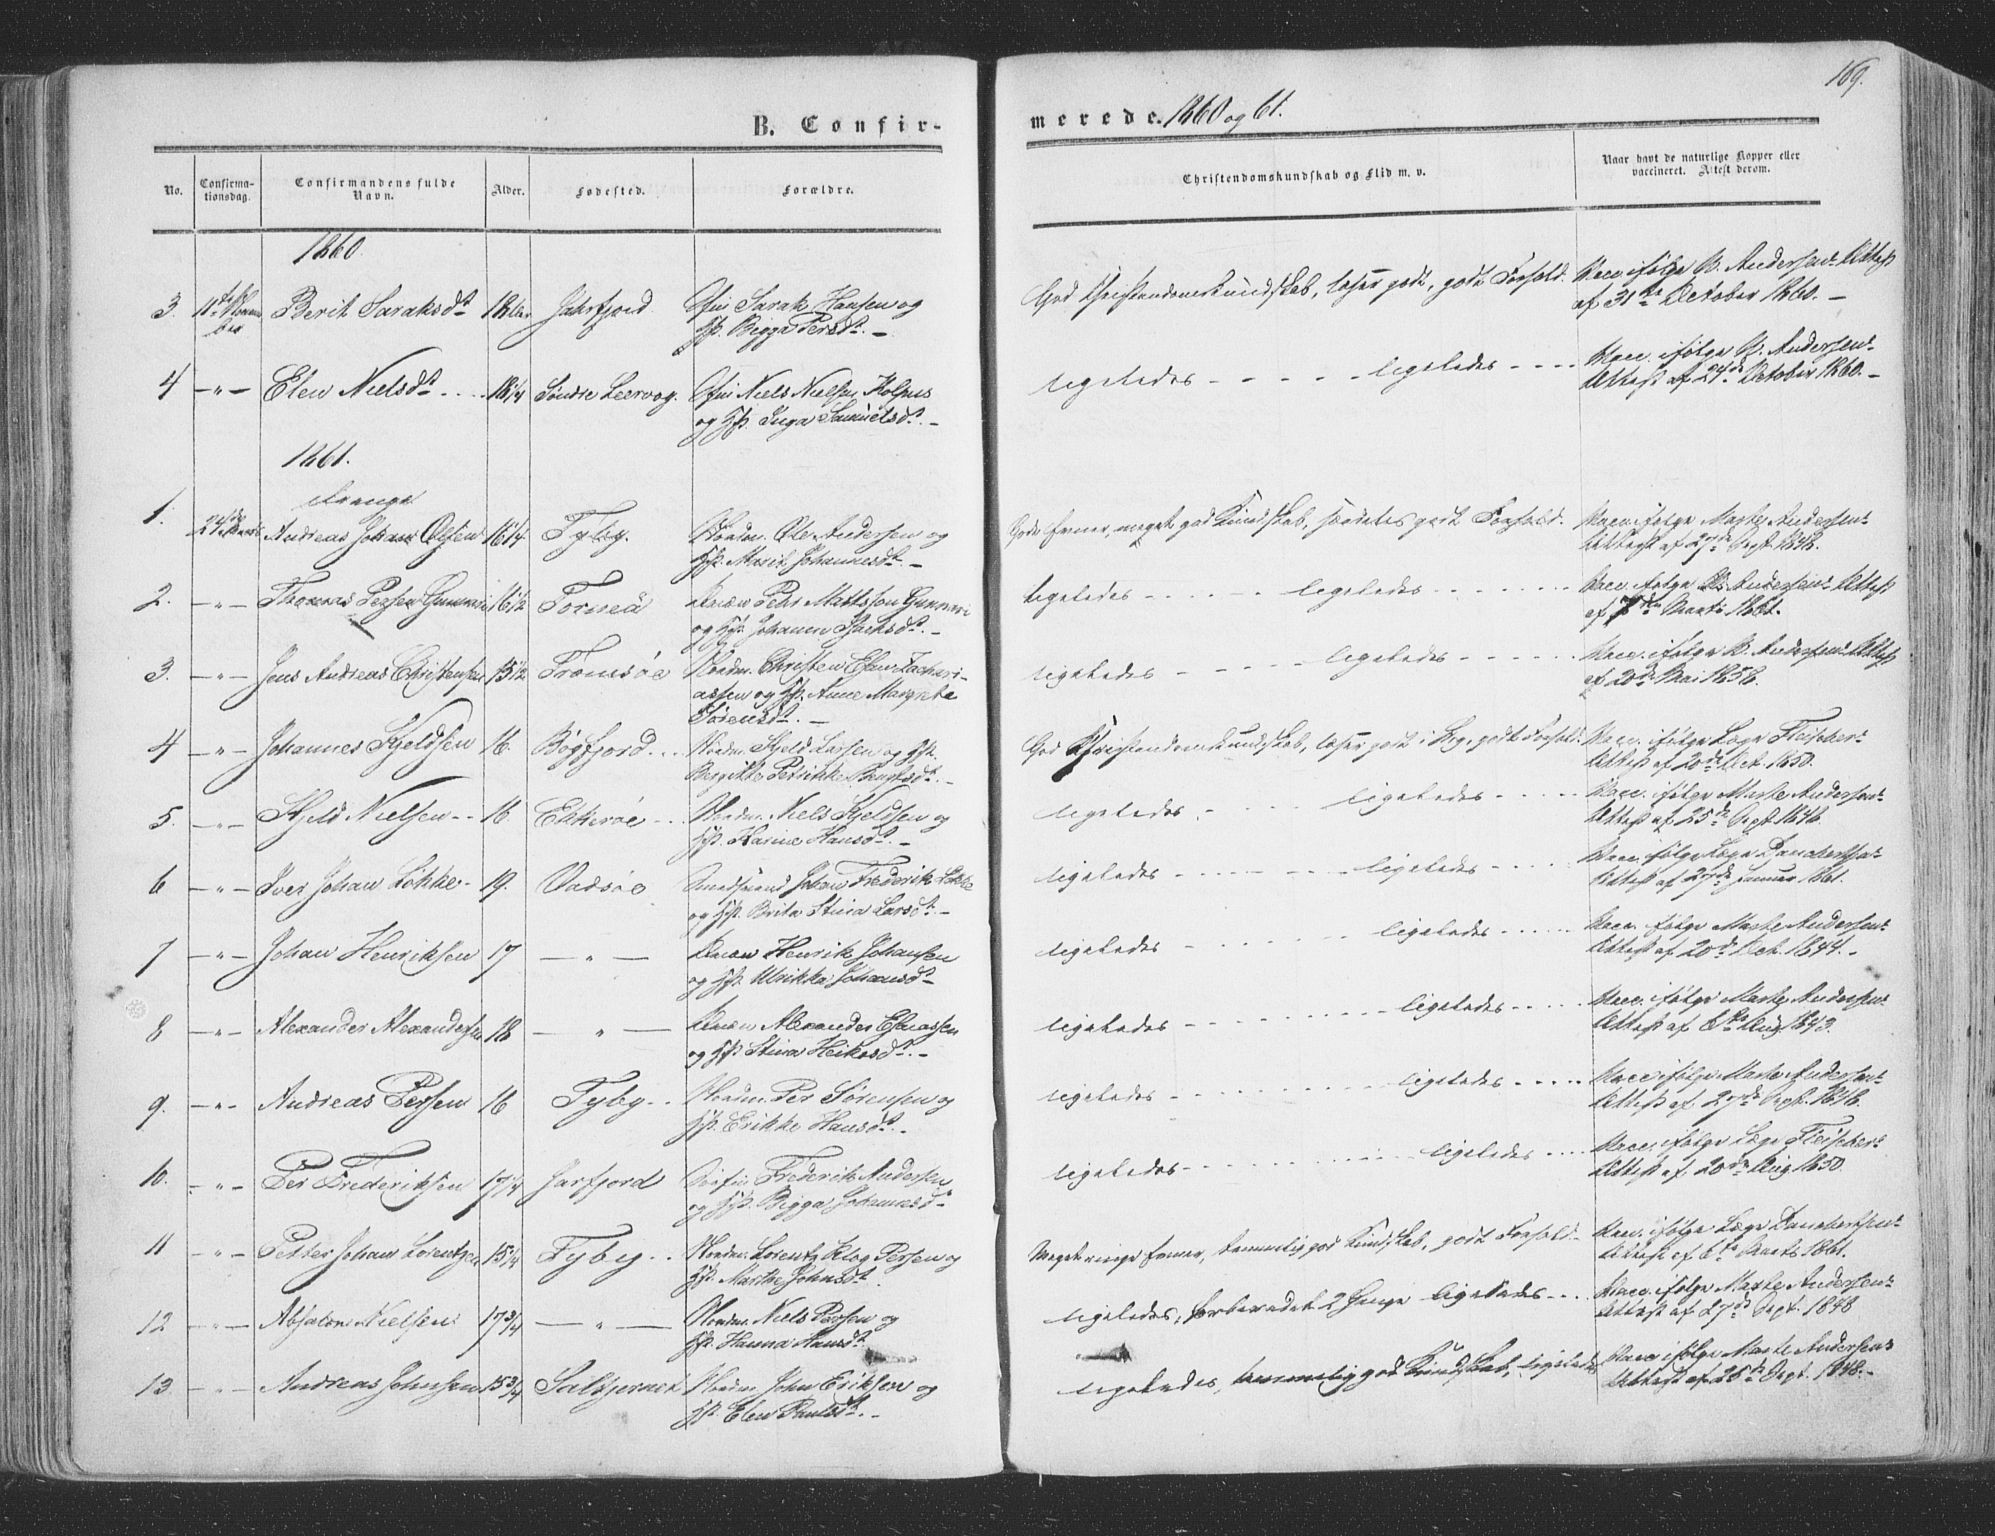 169.
B. Confir-
merede. 1860 og 61.
No.
Confirma-
tionsdag.
Confirmandens fulde
Navn.
Alder.
Fødested.
Forældre.
Christendomskundskab og Flid m. v.
Naar havt de naturlige Kopper eller
vaccineret. Attest derom.
1860.
3. 11te Berit Saraksdt. Jahrfjord Sarak Hansen og
Bigga Persdt. –
God Christendomskundskab, læser godt, godt Forhold.
Vacc. ifølge B. Andersens Attest
af 31te October 1860. –
4 –"– Elen Nielsdt. 18 1/4 Søndre Leervog. Niels Nielsen Holpus
og Inga Samuelsdt. –
ligeledes ligeledes
Vacc. ifølge B. Andersens
Attest af 24de October 1860. –
1861.
Drenge
1. 24de Andreas Johan Olsen 16 1/4 Fyby. Nordm. Ole Andersen og
Marit Johannesdt. –
meget god Kundskab, særdeles godt Forhold.
Vacc. ifølge Marthe Andersens
Attest af 27de Sept. 1848.
2. –"– Thomas Persen Gunnari 16 1/2 Torneå Qvæn Pehr Mattsson Gunnari
og Johanna
ligeledes ligeledes
Vacc. ifølge B. Andersens Attest
af 7de Marts 1861.
3. –"– Jens Andreas Christensen 15 1/2 Tromsøe Nordm. Christen Zachari-
assen og Anne Margrete
Sørensdt. –
ligeledes ligeledes
Vacc. ifølge B. Andersens Attest
af 20de Mai 1858.
4 –"– Johannes Kjeldsen 16. Bøgfjord Nordm. Kjeld Larsen og
Petrikke
God Christendomskundskab, læser godt i Bog, godt Forhold.
Vacc. ifølge Læge Fleischers
Attest af 20de Oct. 1850.
5. –"– Kjeld Nielsen 16. Ekkerøe Nordm. Niels Kjeldsen og
Karine Hansdt. –
ligeledes ligeledes
Vacc. ifølge Marthe Andersens
Attest af 25de Sept. 1846.
6 –"– Iver Johan Løkke 19. Vadsøe Johan Frederik Løkke
og Brita Stina Larsdt. –
ligeledes ligeledes
Vacc. ifølge Læge Danchertsens
Attest af 27de Januar 1861.
7 –"– Johan Henriksen 17 –"– Qvæn Henrik Johansen
og Ulrikka Johansdt. –
ligeledes ligeledes
Vacc. ifølge Marthe Andersens
Attest af 20de Oct. 1844. –
8 –"– Alexander Alexandersen 18 –"– Qvæn Alexander Esaiassen
og Stina Heikasdt. –
ligeledes ligeledes
Vacc. ifølge Marthe Andersens
Attest af 6te Aug. 1843.
9. –"– Andreas Persen 16 Fyby Nordm. Per Sørensen og
Erikke Hansdt. –
ligeledes ligeledes
Vacc. ifølge Marthe Andersens
Attest af 27de Sept. 1848.
10. –"– Per Frederiksen 17 1/4 Jarfjord Frederik Andersen
og Bigga Johannesdt. –
ligeledes ligeledes
Vacc. ifølge Læge Fleischers
Attest af 20de Aug. 1850.
11 –"– Petter Johan Lorentzen 15 3/4 Fyby Nordm. Lorentz Klog Persen og
Marthe Johnsdt.
Meget ringe Evner, temmelig god Kundskab, godt Forhold.
Vacc. ifølge Læge Danchertsens
Attest af 6te Marts 1861.
12 –"– Absalon Nielsen 17 3/4 –"– Nordm. Niels Persen og
Hanna Hansdt.
ligeledes, forberedet 2 Gange ligeledes
Vacc. ifølge Marthe Andersens
Attest af 27de Sept. 1848
13 –"– Andreas Johnsen 15 3/4 Saltjernet Nordm. John Eriksen og
Elen Paulsdt. –
ligeledes, temmelig god Kundskab, ligeledes
Vacc. ifølge Marthe Andersens
Attest af 25de Sept. 1848. –